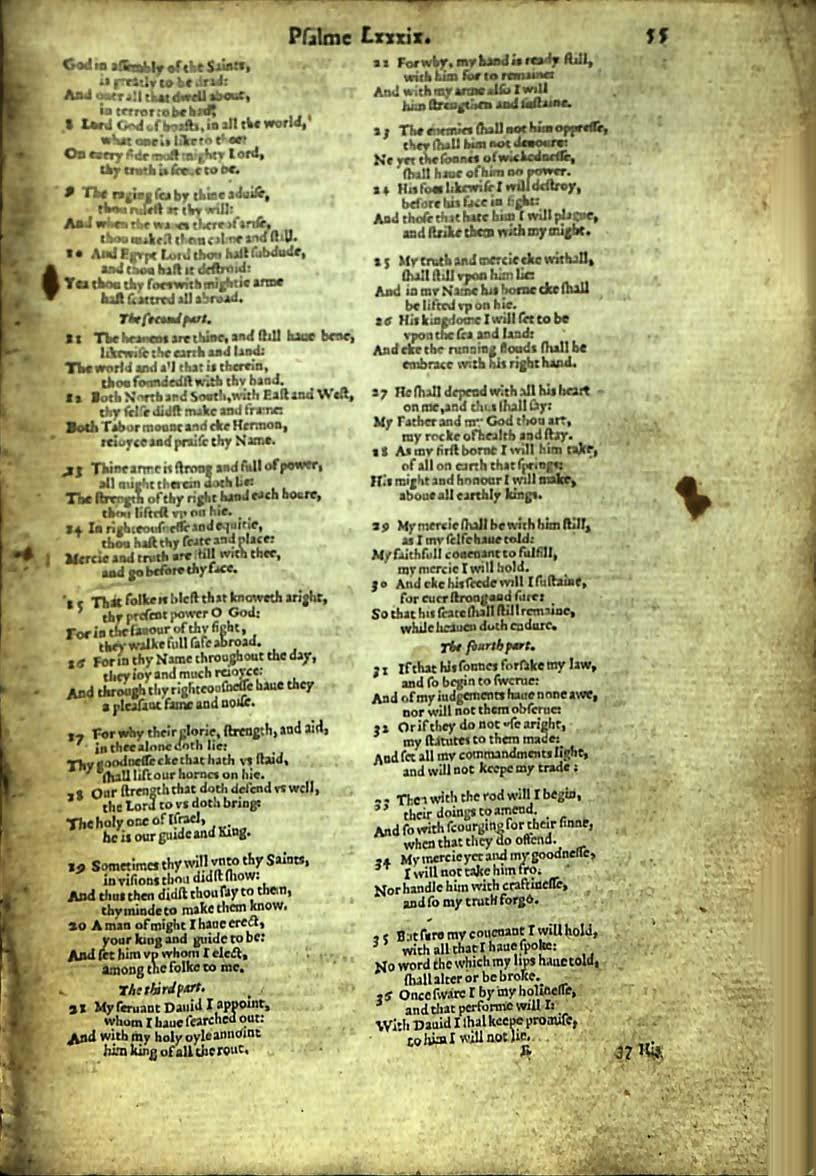 Pſalme Lxxxix. 55
God in aſſembly of the Saints,
is greatly to be drad:
And ouer all that dwell about,
in terror to be had.
8 Lord God of hoaſts, in all the world,
what one is like to thee:
On euery ſide moſt mighty Lord,
thy truth is ſeene to be.
9 The raging ſea by thine aduiſe,
thou ruleſt at thy will:
And when the waues thereof ariſe,
thou makeſt them calme and ſtill.
10 And Egypt Lord thou haſt ſubdude,
and thou haſt it deſtroid:
Yea thou thy foes with mightie arme
haſt ſcattred all abroad.
The ſecond part.
11 The heauens are thine, and ſtill haue bene,
likewiſe the earth and land:
The world and all that is therein,
thou foundedſt with thy hand.
12 Both North and South, with Eaſt and Weſt,
thy ſelfe didſt make and frame:
Both Tabor mount and eke Hermon,
reioyce and praiſe thy Name.
13 Thine arme is ſtrong and full of power,
all might therein doth lie:
The ſtrength of thy right hand each houre,
thou lifteſt vp on hie.
14 In righteouſneſſe and equitie,
thou haſt thy ſeate and place:
Mercie and truth are ſtill with thee,
and go before thy face.
15 That folke is bleſt that knoweth aright,
thy preſent power O God:
For in the fauour of thy ſight,
they walke full ſafe abroad.
16 For in thy Name throughout the day,
they ioy and much reioyce:
And through thy righteouſneſſe haue they
a pleaſant fame and noiſe.
17 For why their glorie, ſtrength, and aid,
in thee alone doth lie:
Thy goodneſſe eke that hath vs ſtaid,
ſhall lift our hornes on hie.
18 Our ſtrength that doth defend vs well,
the Lord to vs doth bring:
The holy one of Iſrael,
he is our guide and King.
19 Sometimes thy will vnto thy Saints,
in viſions thou didſt ſhow:
And thus then didſt thou ſay to them,
thy minde to make them know.
20 A man of might I haue erect,
your king and guide to be:
And ſet him vp whom I elect,
among the folke to me.
The third part.
21 My ſeruant Dauid I appoint,
whom I haue ſearched out:
And with my holy oyle annoint
him king of all the rout.
22 For why, my hand is ready ſtill,
with him for to remaine:
And with my arme alſo I will
him ſtrengthen and ſuſtaine.
23 The enemies ſhall not him oppreſſe,
they ſhall him not deuoure:
Ne yet the ſonnes of wickedneſſe,
ſhall haue of him no power.
24 His foes likewiſe I will deſtroy,
before his face in ſight:
And thoſe that hate him I will plague,
and ſtrike them with my might.
25 My truth and mercie eke withall,
ſhall ſtill vpon him lie:
And in my Name his horne eke ſhall
be lifted vp on hie.
26 His kingdome I will ſet to be
vpon the ſea and land:
And eke the running flouds ſhall he
embrace with his right hand.
27 He ſhall depend with all his heart
on me, and thus ſhall ſay:
My Father and my God thou art,
my rocke of health and ſtay.
28 As my firſt borne I will him take,
of all on earth that ſprings:
His might and honour I will make,
aboue all earthly kings.
29 My mercie ſhall be with him ſtill,
as I my ſelfe haue told:
My faithfull couenant to fulfill,
my mercie I will hold.
30 And eke his ſeede will I ſuſtaine,
for euer ſtrong and ſure:
So that his ſeate ſhall ſtill remaine,
while heauen doth endure.
The fourth part.
31 If that his ſonnes forſake my law,
and ſo begin to ſwerue:
And of my iudgements haue none awe,
nor will not them obſerue:
32 Or if they do not vſe aright,
my ſtatutes to them made:
And ſet all my commandments light,
and will not keepe my trade:
33 Then with the rod will I begin,
their doings to amend.
And ſo with ſcourging for their ſinne,
when that they do offend.
34 My mercie yet and my goodneſſe,
I will not take him fro:
Nor handle him with craftineſſe,
and ſo my truth forgo.
35 But ſure my couenant I will hold,
with all that I haue ſpoke:
No word the which my lips haue told,
ſhall alter or be broke.
36 Once ſware I by my holineſſe,
and that performe will I:
With Dauid I ſhal keepe promiſe,
to him I will not lie.
37 His